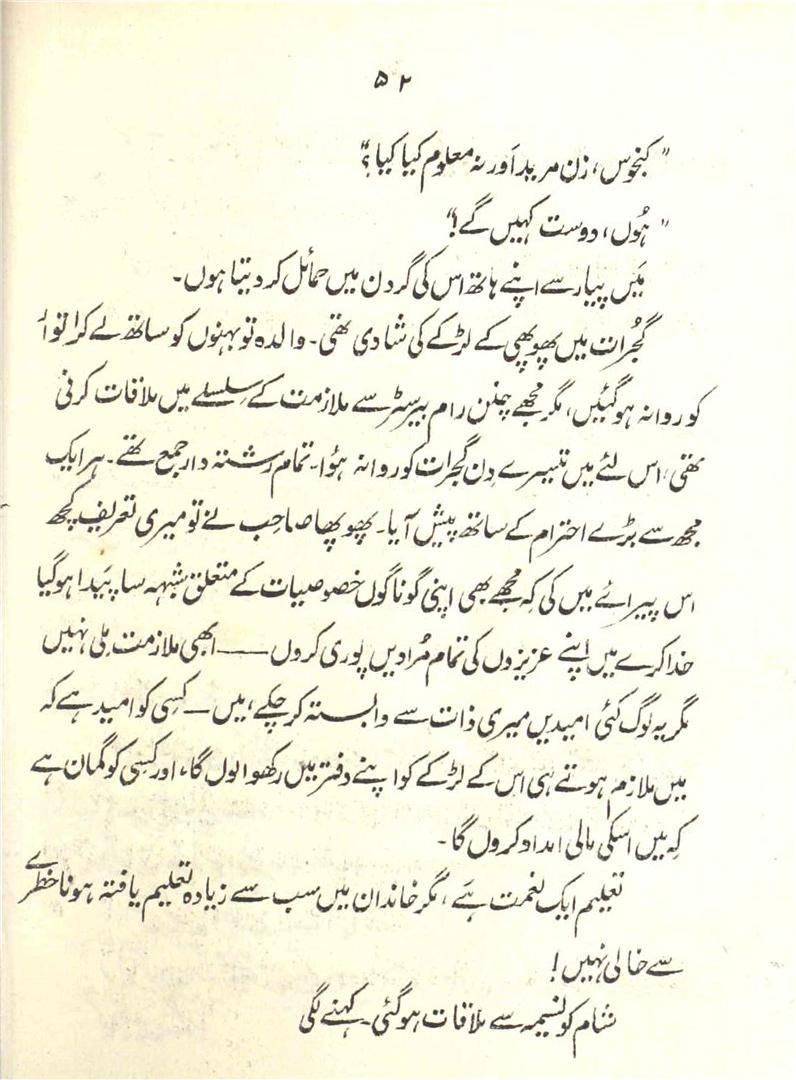 ۵۲
"کنجوس، زن مرید اَور نہ معلوم کیا کیا؟"
"ہُوں، دوست کہیں گے!"
مَیں پیار سے اپنے ہاتھ اس کی گردن میں حمائل کر دیتا ہوں۔
گجُرات میں پھوپھی کے لڑکے کی شادی تھی۔ والدہ تو بہنوں کو ساتھ لے کر اتوار
کو روانہ ہو گئیں، مگر مجھے چنن رام بیرسٹر سے ملازمت کے سِلسلے میں ملاقات کرنی
تھی، اس لئے میں تیسرے دِن گجرات کو روانہ ہؤا۔ تمام رشتہ دار جمع تھے۔ ہر ایک
مجھ سے بڑے احترام کے ساتھ پیش آیا۔ پھوپھا صاحب نے تو میری تعریف کچھ
اس پیرائے میں کی کہ مجھے بھی اپنی گوناگوں خصوصیات کے متعلق شبہہ سا پَیدا ہو گیا
خدا کرے میں اپنے عزیزوں کی تمام مُرادیں پوری کروں —— ابھی ملازمت مِلی نہیں
مگر یہ لوگ کئی امیدیں میری ذات سے وابستہ کر چکے ہیں — کِسی کو امید ہے کہ
میں ملازم ہوتے ہی اس کے لڑکے کو اپنے دفتر میں رکھوا لوں گا، اور کسِی کو گمان ہے
کہ میں اسکی مالی امداد کروں گا۔
تعلیم ایک نعمت ہَے، مگر خاندان میں سب سے زیادہ تعلیم یافتہ ہونا خطرے
سے خالی نہیں!
شام کو نسیمہ سے ملاقات ہو گئی۔ کہنے لگی